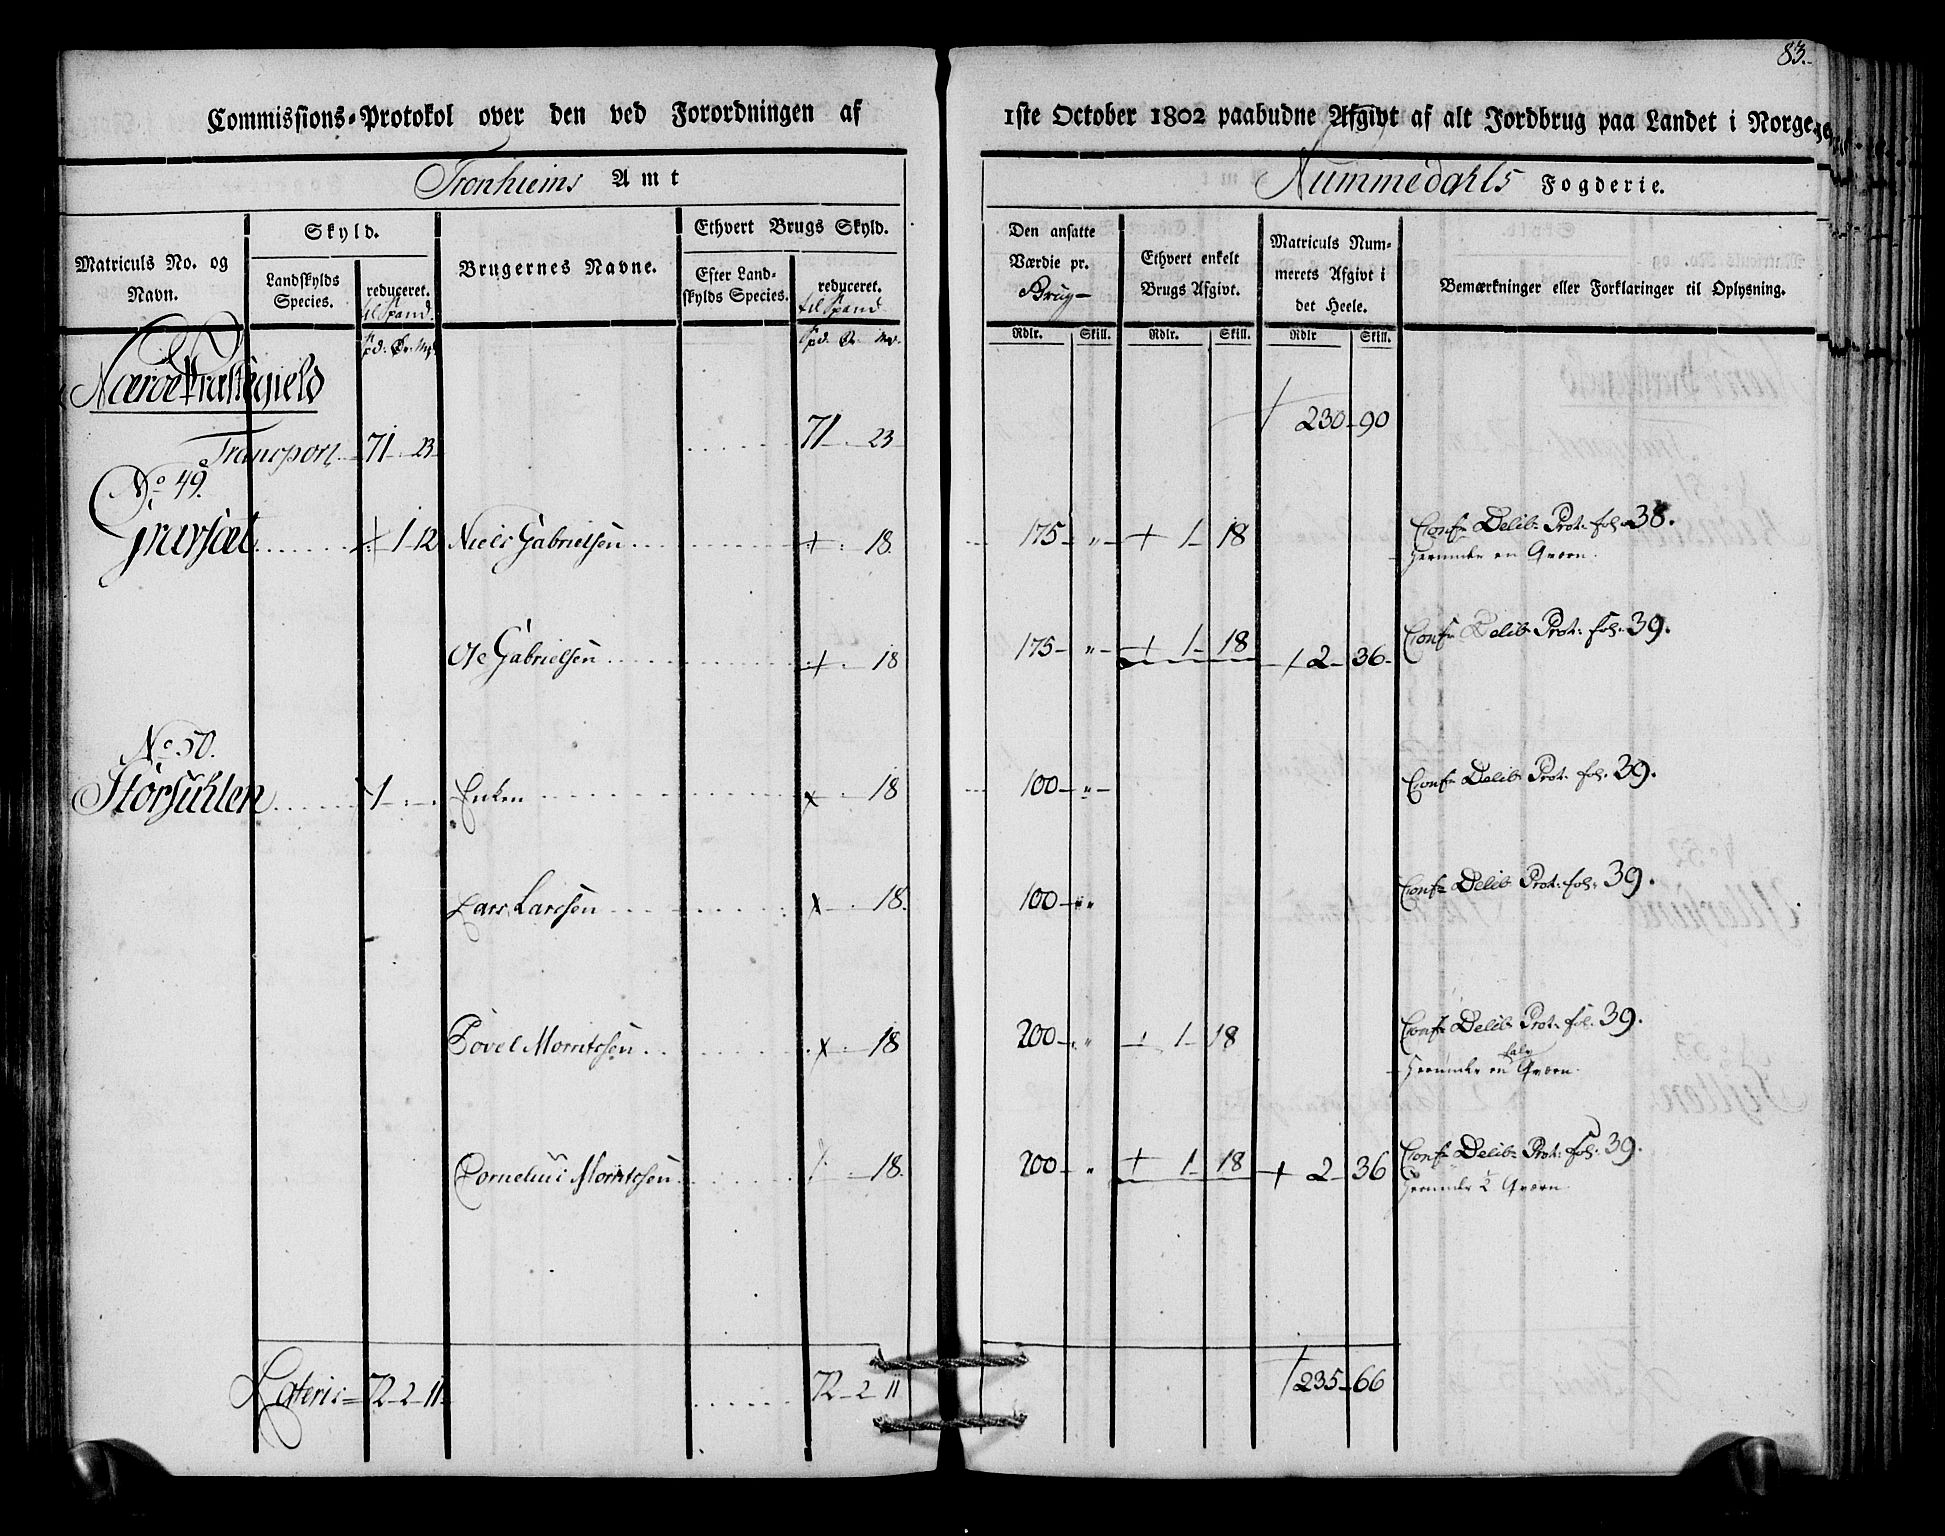 83.
Commissions-Protokol over den ved Forordningen af 1ste October 1802 paabudne Afgivt af alt Jordbrug paa Landet i Norge
Tronhiems Amt
Nummedahls Fogderie.
Matriculs No. og Navn.
Skyld.
Landskylds Species.
reduceret.
til Spand
Spd: Ør: Mk:
Brugernes Navne.
Ethvert Brugs Skyld.
Efter Landskylds Species.
reduceret.
til Spand
Spd: Ør: Mk:
Den ansatte Værdie pr. Brug
Rdlr. Skill.
Ethvert enkelt Brugs Afgivt.
Rdlr. Skill.
Matriculs Nummerets Afgivt i det Heele.
Rdlr Skill.
Bemærkninger eller Forklaringer til Oplysning.
Nærøe Præstegield
Transport 71 - 23 71 - 23 230 - 90
No 49.
1 12 Niels Gabrielsen 18 175 - " - 1 - 18 Conf: Delib: Prot: fol: 38.
Herunder en Qværn.
Ole Gabrielsen 18 175 - " - 1 - 18 2 - 36 - Conf: Delib: Prot: fol: 39.
No 50.
1 - Enken 18 100 - " - Conf: Delib: Prot: fol: 39.
Lars Larssen 18. 100 - " Conf: Delib: Prot: fol: 39.
Povel Morritssen 18 200 - " 1 - 18 Conf: Delib: Prot: fol: 39.
halv
Herunder en Qværn.
Cornelius Morritssen 18. 200 - " 1 - 18 2 - 36 Conf: Delib: Prot: fol: 39.
Herunder ½ Qværn.
Lateris = 72 - 2 - 11 72 - 2 11 235 - 66